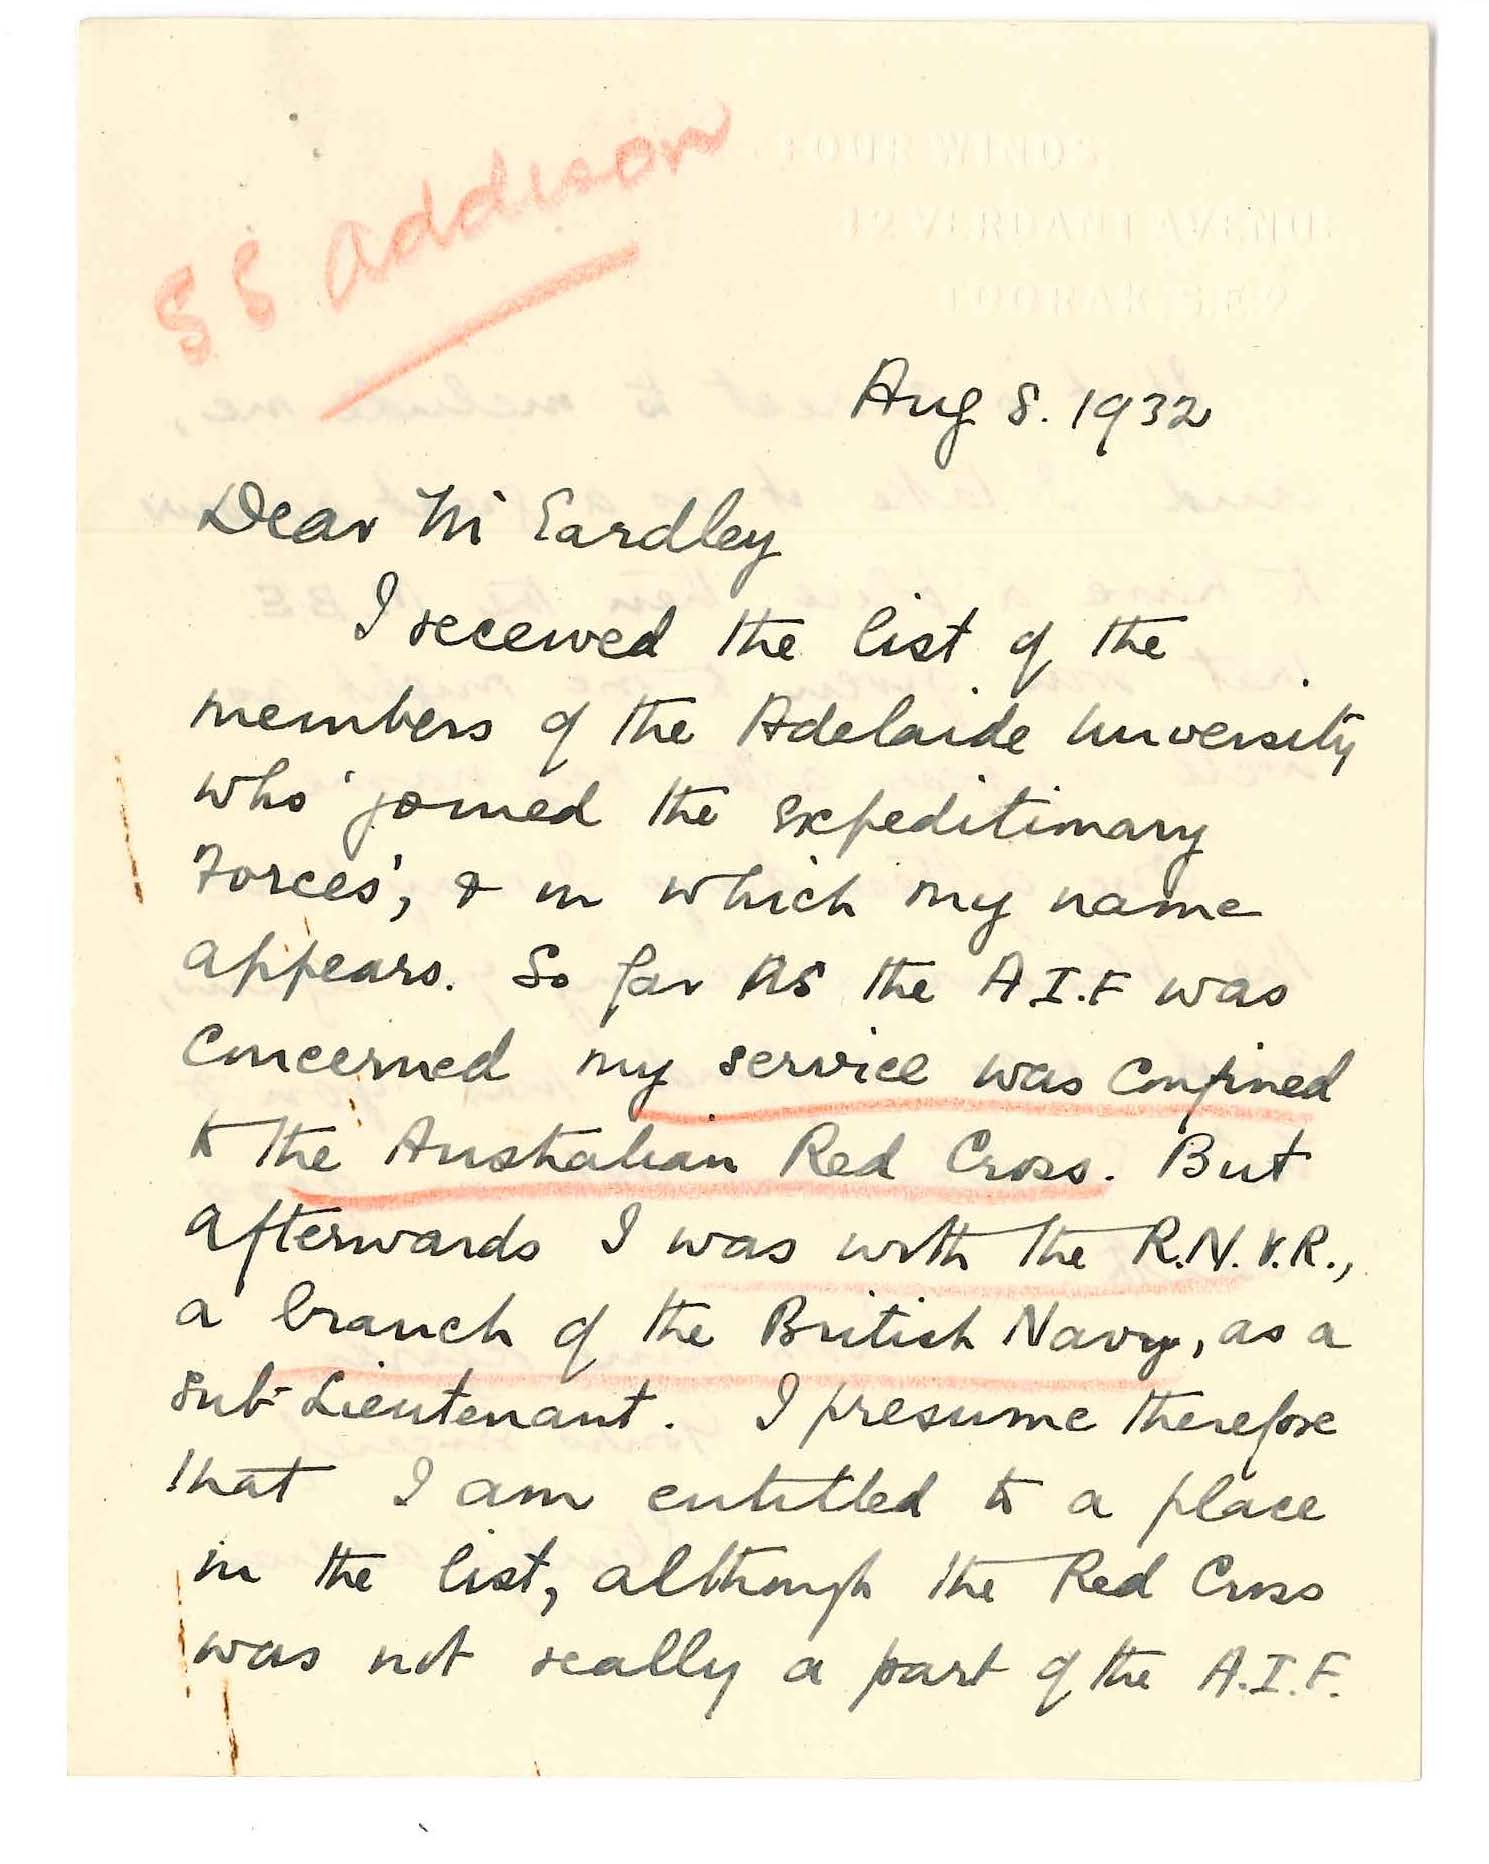 SS Addison
FOUR WINDS,
12 VERDANT AVENUE
TOORAK. S.E.2
Aug 8. 1932
Dear Mr Eardley
I received the list of the
members of the Adelaide University
who 'joined the expeditionary
Forces', & in which my name
appears. So far as the A.I.F was
concerned my service was confined
to the Australian Red Cross. But
afterwards I was with the R.N.V.R.,
a branch of the British Navy, as a
Sub-Lieutenant. I presume therefore
that I am entitled to a place
in the list, although the Red Cross
was not really a part of the A.I.F.